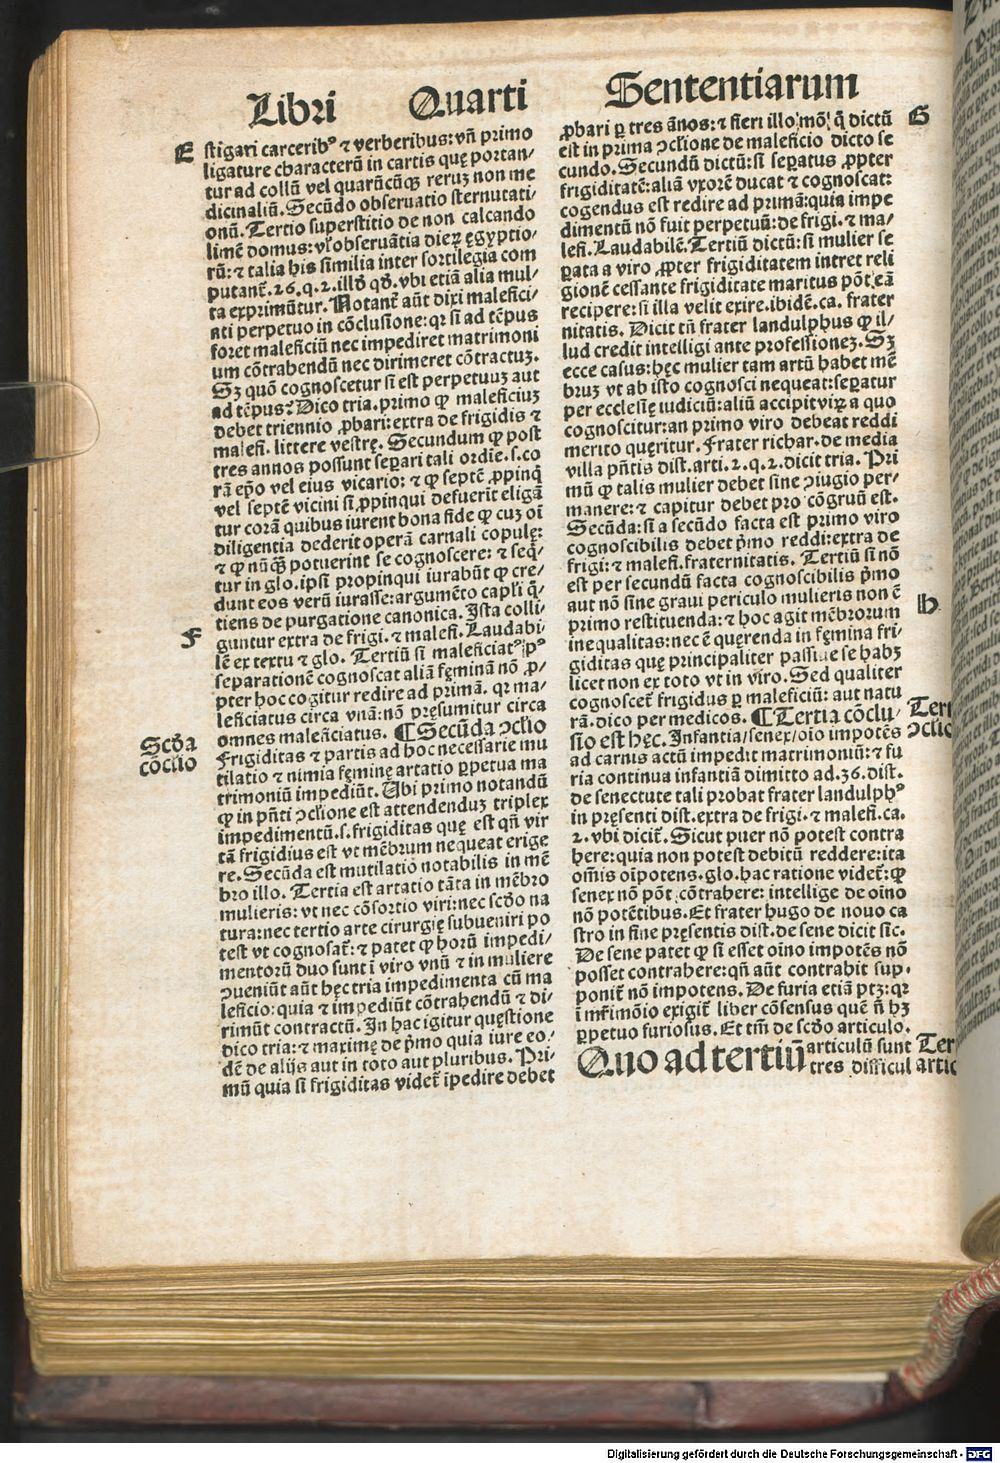 Libri Quarti Sententiarum
E
stigari carcerib⁹ ⁊ verberibus: vñ primo
ligature characterū in cartis quę portan/
tur ad collū vel quarūcūqꝫ reruꝫ non me
dicinaliū. Secūdo obseruatio sternutati/
onū. Tertio superstitio de non calcando
limē domus: vl̓ obseruātia dieꝝ ęgyptio/
rū: ⁊ talia his similia inter sortilegia com
putant̄. 26. q. 2. illđ qđ. vbi etiā alia mul/
ta exprimūtur. Notant̄ aūt dixi malefici/
ati perpetuo in cōclusione: qꝛ si ad tēpus
foret maleficiū nec impediret matrimoni
um cōtrahendū nec dirimeret cōtractuꝫ.
Sꝫ quō cognoscetur si est perpetuuꝫ aut
ad tēpus? Dico tria. primo ꝙ maleficiuꝫ
debet triennio ꝓbari: extra de frigidis ⁊
malefi. littere vestrę. Secundum ꝙ post
tres annos possunt seꝑari tali ordīe. s. co
rā ep̄o vel eius vicario: ⁊ ꝙ septē ꝓpinq̄
vel septē vicini si ꝓpinqui defuerīt eligā
tur corā quibus iurent bona fide ꝙ cuꝫ oī
diligentia dederīt operā carnali copulę:
⁊ ꝙ nūqꝫ potuerint se cognoscere: ⁊ seq̄/
tur in glo. ipsi propinqui iurabūt ꝙ cre/
dunt eos verū iurasse: argumēto capli q̄/
tiens de purgatione canonica. Ista colli/
F
guntur extra de frigi. ⁊ malefi. Laudabi/
lē ex textu ⁊ glo. Tertiū si maleficiat⁹ p⁹
separationē cognoscat aliā fęminā nō ꝓ/
pter hoc cogitur redire ad primā. qꝛ ma/
leficiatus circa vnā: nō pręsumitur circa
omnes maleficiatus. ¶ Secūda ↄclȳo
Scđa
cōclȳo
Frigiditas ⁊ partis ad hoc necessarie mu
tilatio ⁊ nimia fęminę artatio ꝑpetua ma
trimoniū impediūt. Ubi primo notandū
ꝙ in pn̄ti ↄclȳone est attendenduꝫ triplex
impedimentū. s. frigiditas quę est qn̄ vir
tā frigidius est vt mēbrum nequeat erige
re. Secūda est mutilatio notabilis in mē
bro illo. Tertia est artatio tāta in mēbro
mulieris: vt nec cōsortio viri: nec scđo na
tura: nec tertio arte cirurgię subueniri po
test vt cognosat̄: ⁊ patet ꝙ horū impedi/
mentorū duo sunt ī viro vnū ⁊ in muliere
ↄueniūt aūt hęc tria impedimenta cū ma
leficio: quia ⁊ impediūt cōtrahendū ⁊ di/
rimūt contractū. In hac igitur quęstione
dico tria: ⁊ maximę de p̄mo quia iure eo/
dē de alijs aut in toto aut pluribus. Pri/
mū quia si frigiditas videt̄ īpedire debet
ꝓbari ꝑ tres ānos: ⁊ fieri illo mō/ q̄ dictū
G
est in prima ↄclȳone de maleficio dicto se
cundo. Secundū dictū: si seꝑatus ꝓpter
frigiditatē: aliā vxorē ducat ⁊ cognoscat:
cogendus est redire ad primā: quia impe
dimentū nō fuit perpetuū: de frigi. ⁊ ma/
lefi. Laudabilē. Tertiū dictū: si mulier se
ꝑata a viro ꝓpter frigiditatem intret reli
gionē cessante frigiditate maritus pōt eā
recipere: si illa velit exire. ibidē. ca. frater
nitatis. Dicit tn̄ frater landulphus ꝙ il/
lud credit intelligi ante professioneꝫ. Sꝫ
ecce casus: hęc mulier tam artū habet mē
bruꝫ vt ab isto cognosci nequeat: seꝑatur
per ecclesię iudiciū: aliū accipit viꝝ a quo
cognoscitur: an primo viro debeat reddi
merito quęritur. Frater richar. de media
villa pn̄tis dist. arti. 2. q. 2. dicit tria. Pri
mū ꝙ talis mulier debet sine ↄiugio per/
manere: ⁊ capitur debet pro cōgruū est.
Secūda: si a secūdo facta est primo viro
cognoscibilis debet p̄mo reddi: extra de
frigi: ⁊ malefi. fraternitatis. Tertiū si nō
est per secundū facta cognoscibilis p̄mo
aut nō sine graui periculo mulieris non ē
H
primo restituenda: ⁊ hoc agit mēbrorum
inequalitas: nec ē quęrenda in fęmina fri/
giditas quę principaliter passiue se habꝫ
licet non ex toto vt in viro. Sed qualiter
cognoscet̄ frigidus ꝑ maleficiū: aut natu
rā. dico per medicos. ¶ Tertia cōclu/
Tert
ↄclȳo
sio est hęc. Infantia/ senex/ oīo impotēs
ad carnis actū impedit matrimoniū: ⁊ fu
ria continua infantiā dimitto ad. 36. dist.
de senectute tali probat frater landulph⁹
in pręsenti dist. extra de frigi. ⁊ malefi. ca.
2. vbi dicit̄. Sicut puer nō potest contra
here: quia non potest debitū reddere: ita
om̄is oīpotens. glo. hac ratione videt̄: ꝙ
senex nō pōt cōtrahere: intellige de oīno
nō potētibus. Et frater hugo de nouo ca
stro in fine pręsentis dist. de sene dicit sic.
De sene patet ꝙ si esset oīno impotēs nō
posset contrahere: qn̄ aūt contrahit sup/
ponit̄ nō impotens. De furia etiā ptꝫ: qꝛ
ī mr̄imōio exigit̄ liber cōsensus quē ñ hꝫ
ꝑpetuo furiosus. Et tm̄ de scđo articulo.
Quo ad tertiū articulū sunt
Ter
artic
tres difficul
Digitalisierung gefördert durch die Deutsche Forschungsgemeinschaft - DFG